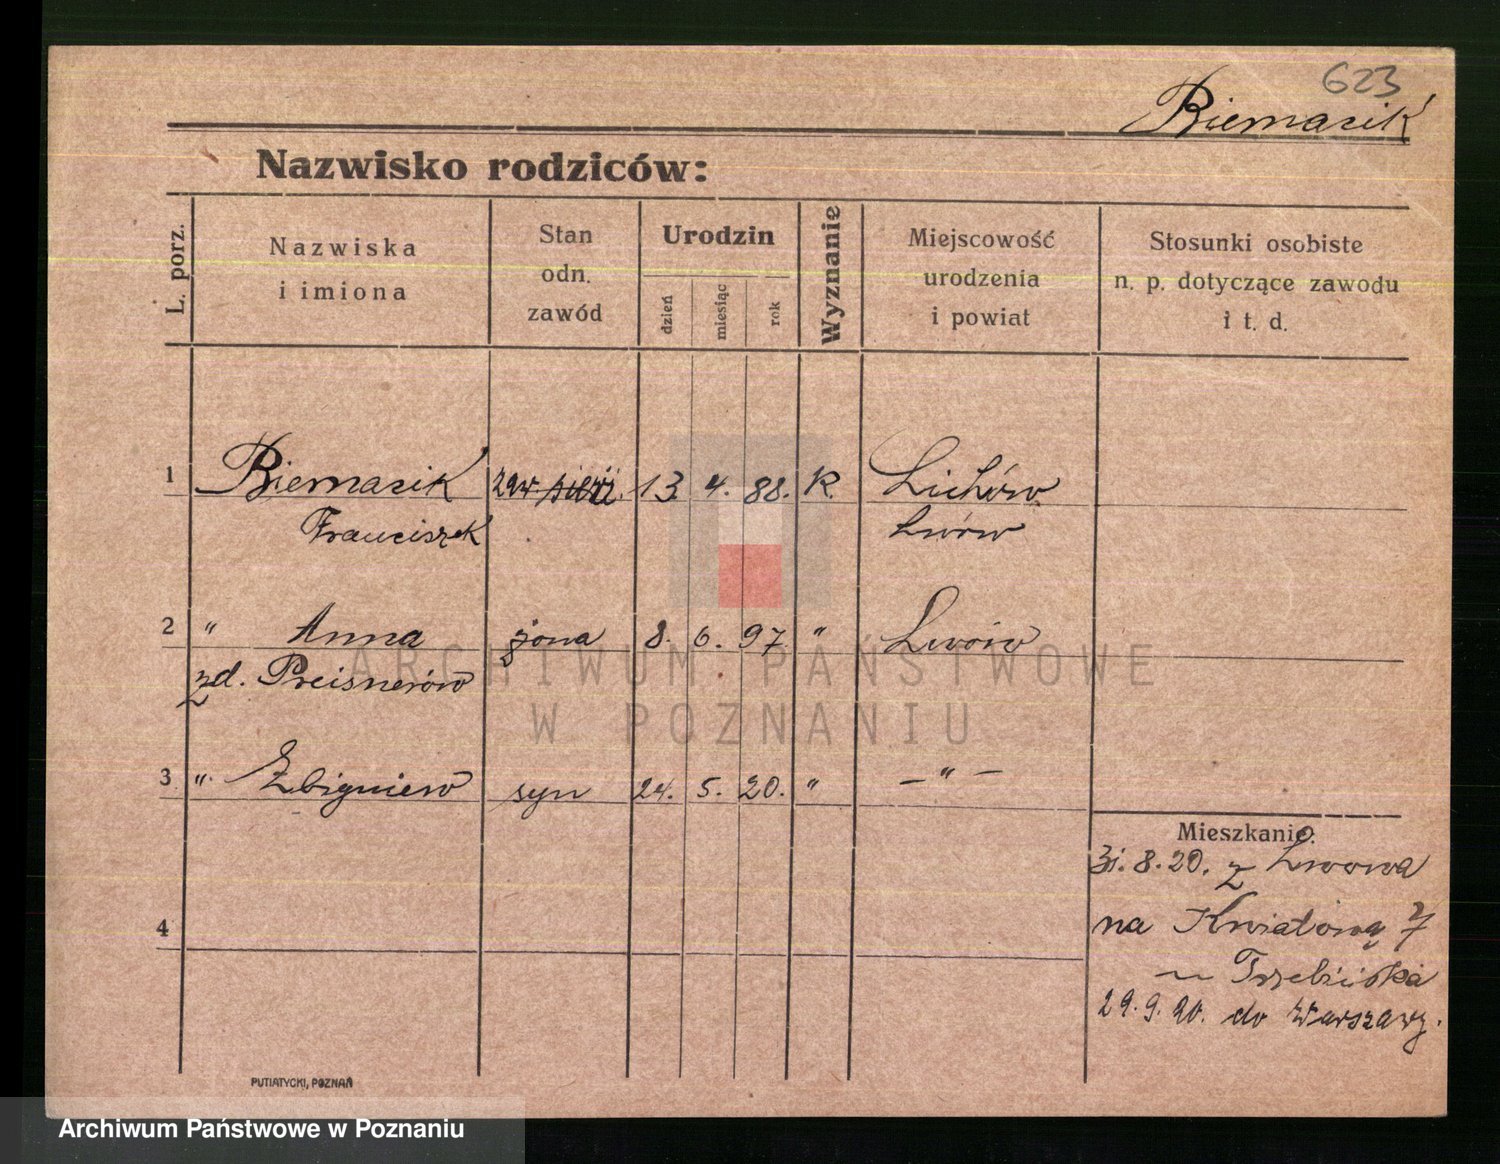 623
Biernacik
Nazwisko rodziców:
L. porz.
Nazwiska
i imiona
Stan
odn.
zawód
Urodzin
dzień
miesiąc
rok
Wyznanie
Miejscowość
urodzenia
i powiat
Stosunki osobiste
n. p. dotyczące zawodu
i t. d.
1 Biernacik zaw 13 4. 88. K. Lichów
Franciszek Lwów
2 " Anna żona 8. 6. 97 " Lwów
zd. Preisnerów
3 " Zbigniew syn 24. 5. 20. " — " —
Mieszkanie.
31. 8. 20. z Lwowa
4
na Kwiatową 7
u
29. 9. 20. do Warszawy.
PUTIATYCKI, POZNAŃ
ARCHIWUM PAŃSTWOWE
W POZNANIU
Archiwum Państwowe w Poznaniu